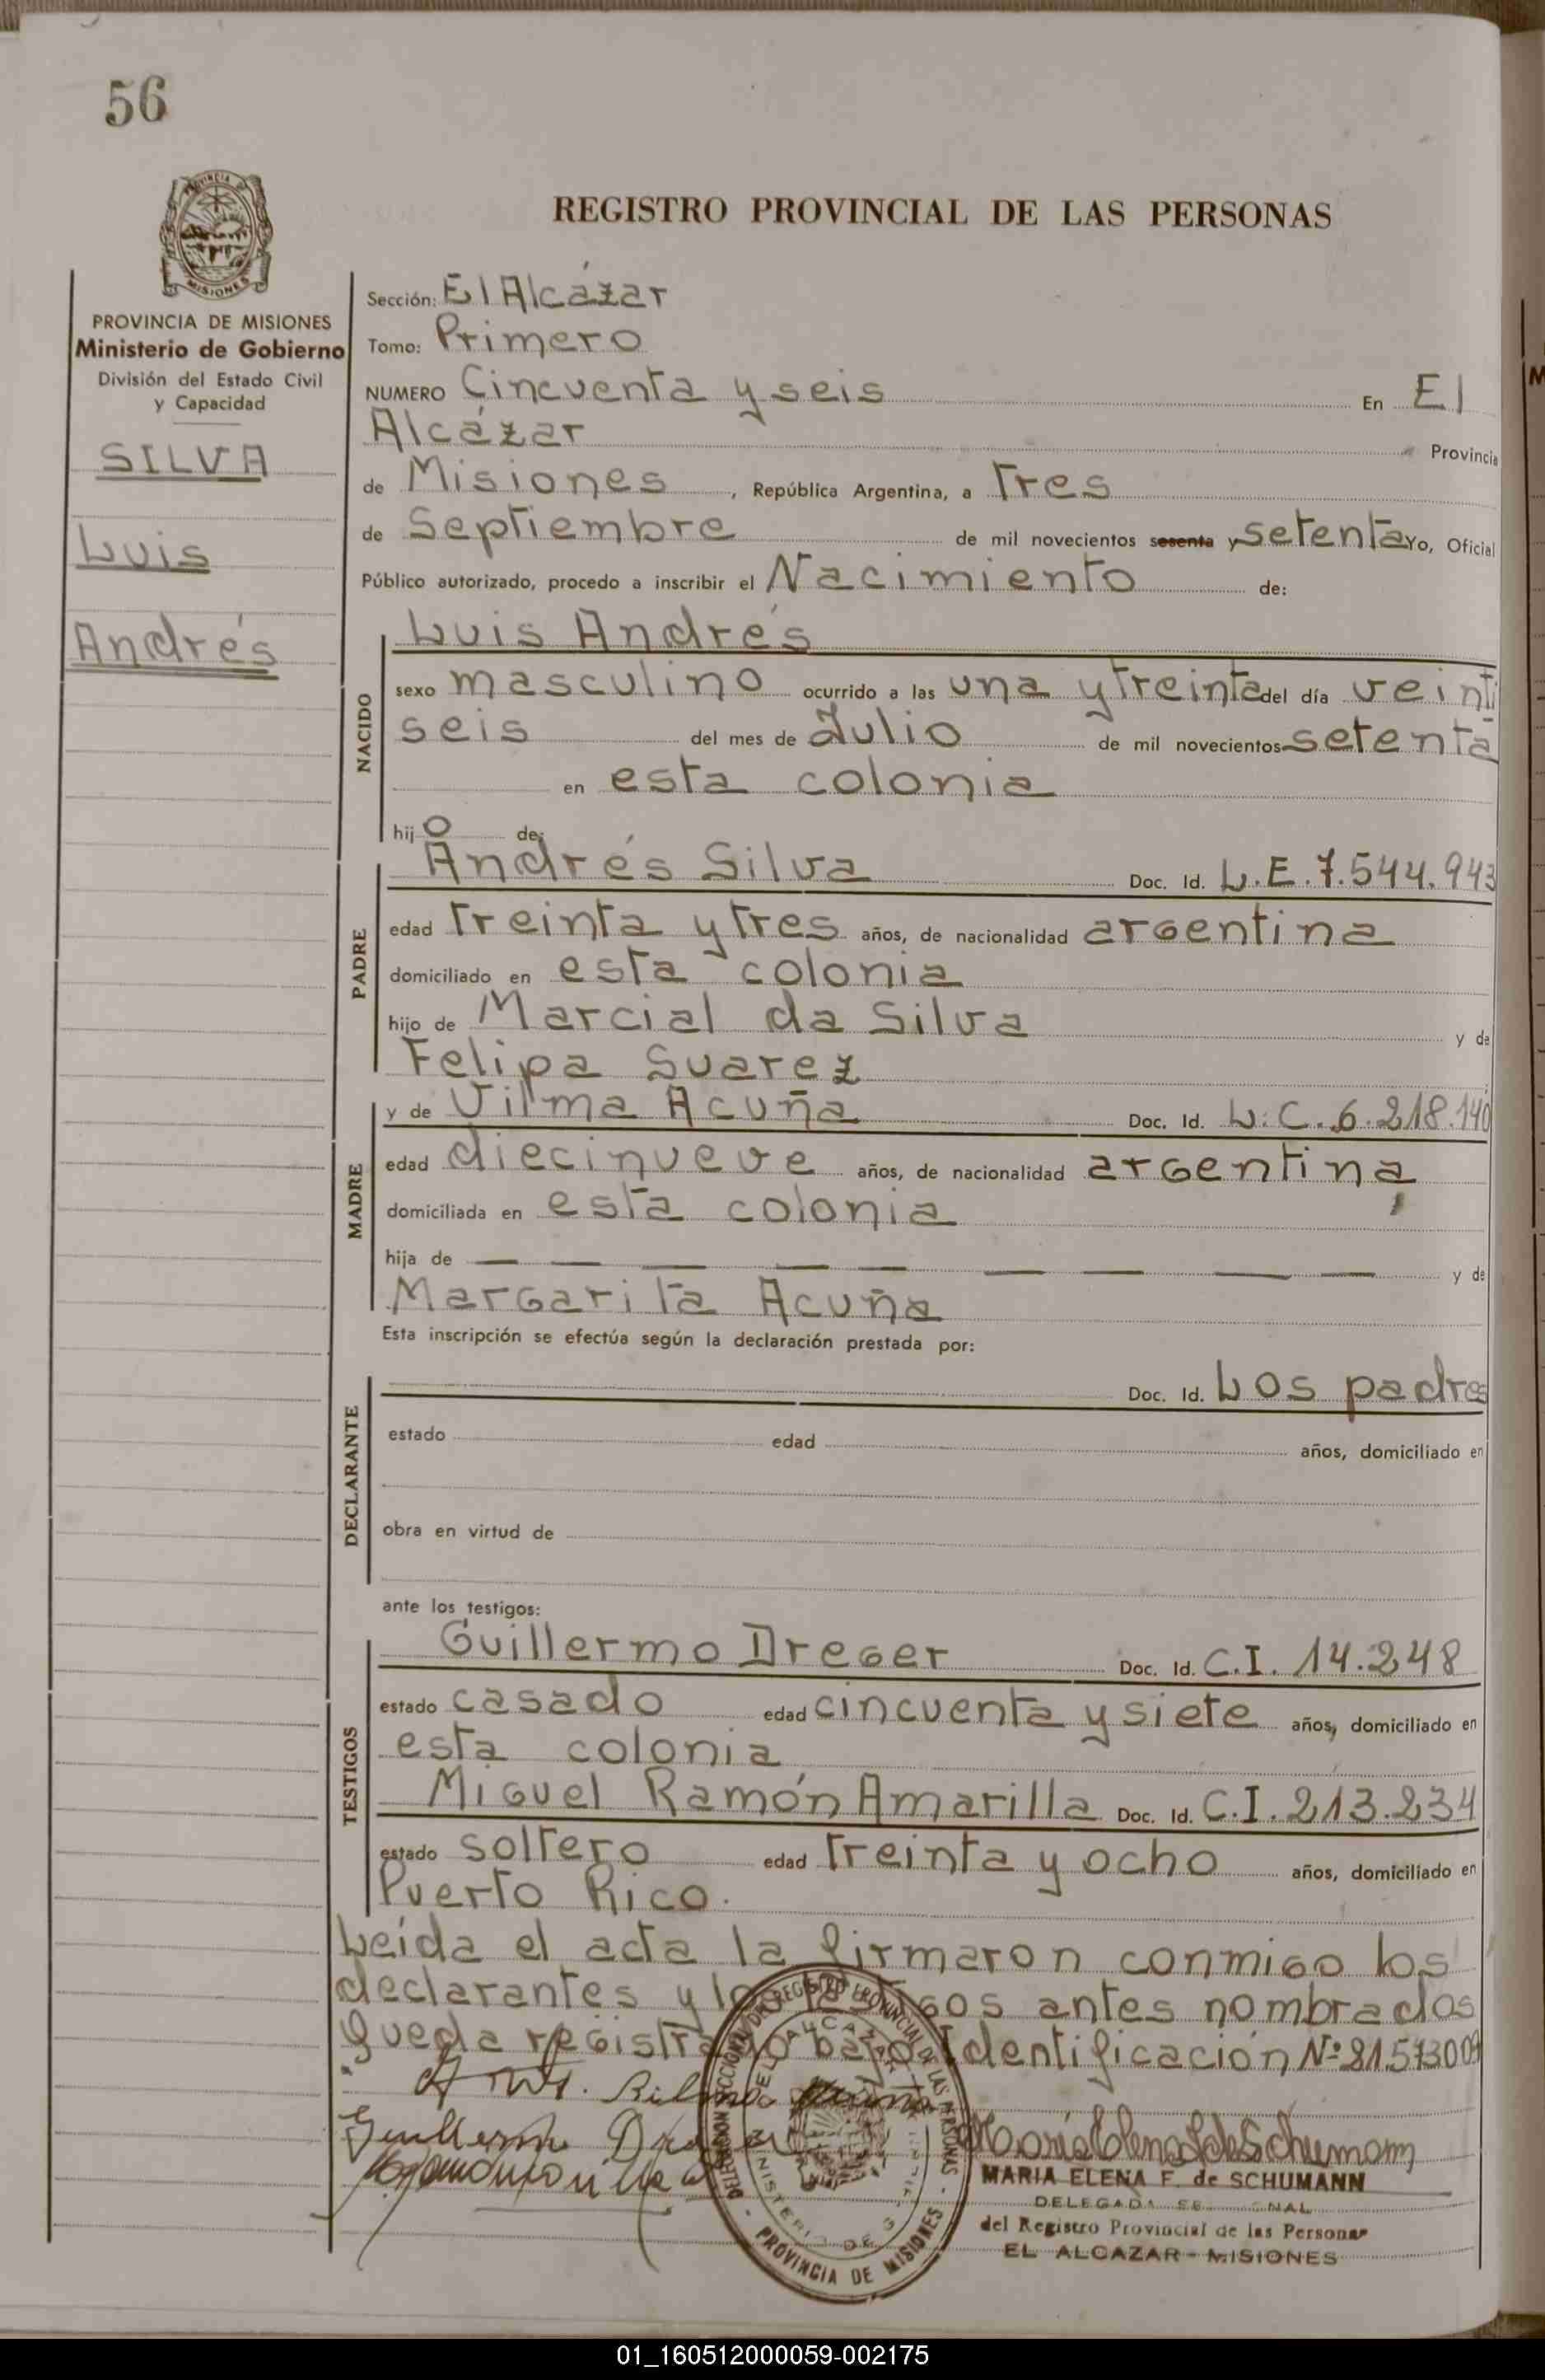 56
REGISTRO PROVINCIAL DE LAS PERSONAS
PROVINCIA DE MISIONES
Ministerio de Gobierno
División del Estado Civil
y Capacidad
SILVA
Luis
Andrés
Sección: El Alcázar
Tomo: Primero
NUMERO Cincuenta y seis En El
Alcázar Provincia
de Misiones, República Argentina, a Tres
de Septiembre de mil novecientos sesenta y setenta Yo, Oficial
Público autorizado, procedo a inscribir el Nacimiento de:
NACIDO
Luis Andrés
sexo masculino ocurrido a las una y treinta del día veinti
seis del mes de Julio de mil novecientos setenta
en esta colonia
hijo de:
PADRE
Andrés Silva Doc. Id. L.E. 7.544.943
edad treinta y tres años, de nacionalidad argentina
domiciliado en esta colonia
hijo de Marcial da Silva y de
Felipa Suarez
MADRE
y de Vilma Acuña Doc. Id. L.C. 6.218.140
edad diecinueve años, de nacionalidad argentina,
domiciliada en esta colonia
hija de — — — — — — — — — y de
Margarita Acuña
Esta inscripción se efectúa según la declaración prestada por:
DECLARANTE
Doc. Id. Los padres
estado edad años, domiciliado en
obra en virtud de
ante los testigos:
TESTIGOS
Guillermo Dreger Doc. Id. C.I. 14.248
estado casado edad cincuenta y siete años, domiciliado en
esta colonia
Miguel Ramón Amarilla Doc. Id. C.I. 213.234
estado soltero edad treinta y ocho años, domiciliado en
Puerto Rico.
Leída el acta la firmaron conmigo los
declarantes y los testigos antes nombrados
Queda registrado bajo Identificación Nº 21.573009
Guillermo Dreger
Maria Elena F de Schumann
MARIA ELENA F. de SCHUMANN
DELEGADA
del Registro Provincial de las Personas
EL ALCAZAR - MISIONES
DELEGACION SECCIONAL DEL REGISTRO PROVINCIAL DE LAS PERSONAS
EL ALCAZAR
MINISTERIO DE
PROVINCIA DE MISIONES
01_160512000059-002175